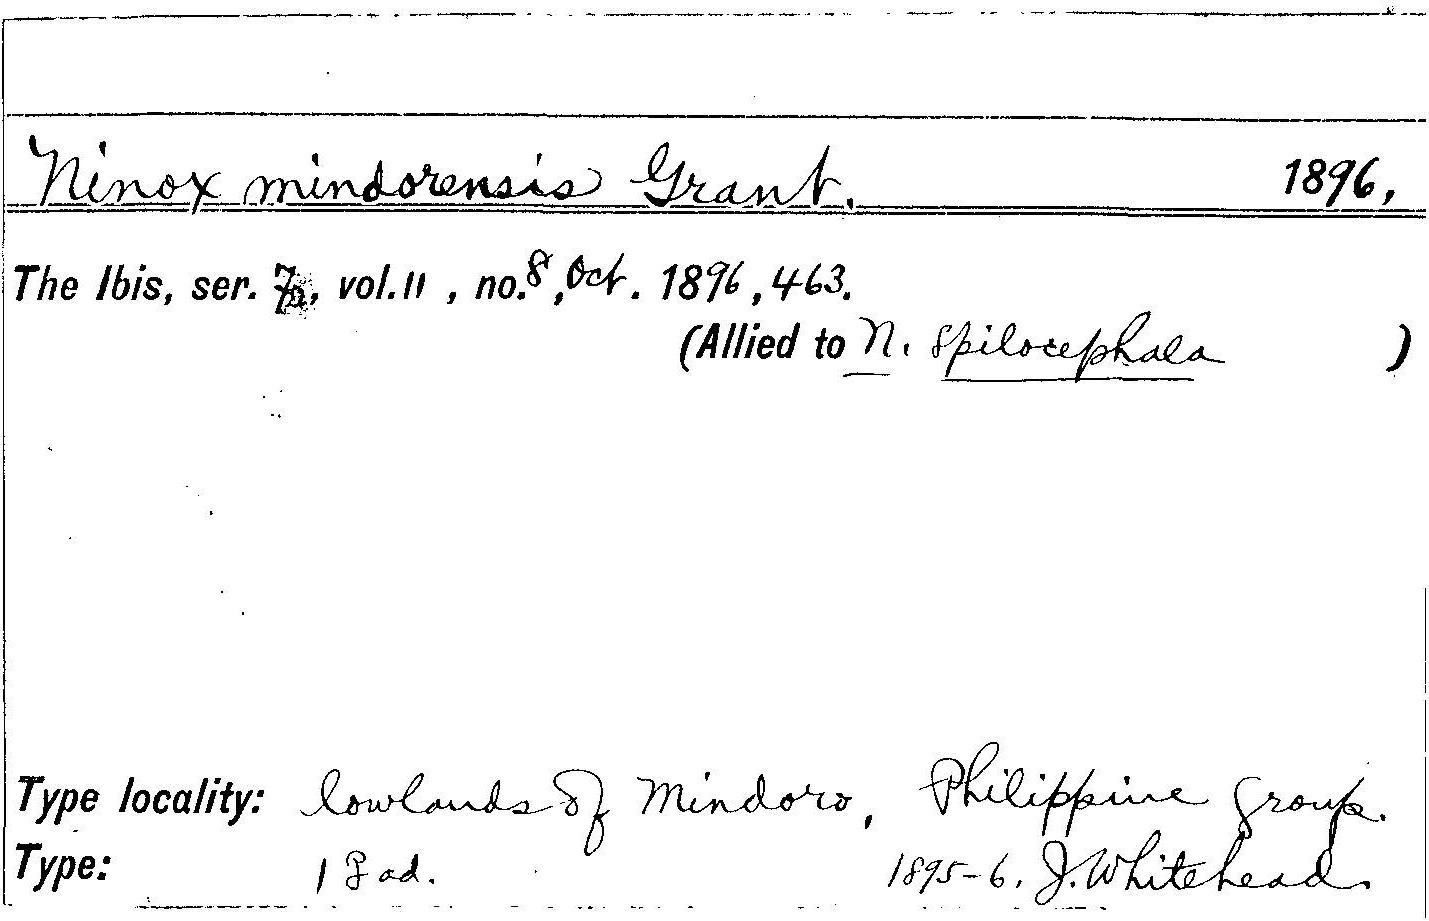 Ninox mindorensis Grant. 1896,
The Ibis, ser. 7, vol. II, no. 8, Oct. 1896, 463.
(Allied to N. spilocephala )
Type locality: lowlands of Mindoro, Philippine Group.
Type: 1 ad. 1895-6. J. Whitehead.